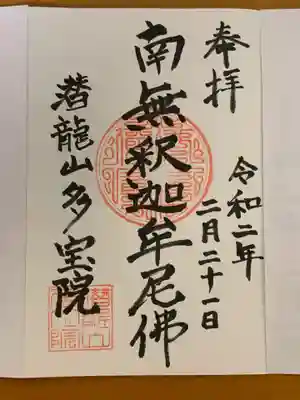 奉拝
令和二年
二月二十一日
南無釈迦牟尼佛
潜龍山多宝院